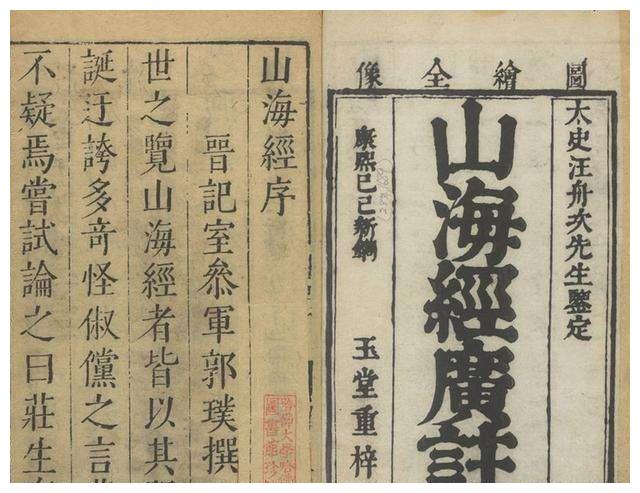 圖繪全像
太史汪舟次先生鑒定
山海經廣註
康熙己巳新鐫
玉堂重梓
山海經序
晉記室叅軍郭璞撰
世之覽山海經者皆以其
誕迂誇多竒怪俶儻之言
不疑焉嘗試論之曰莊生